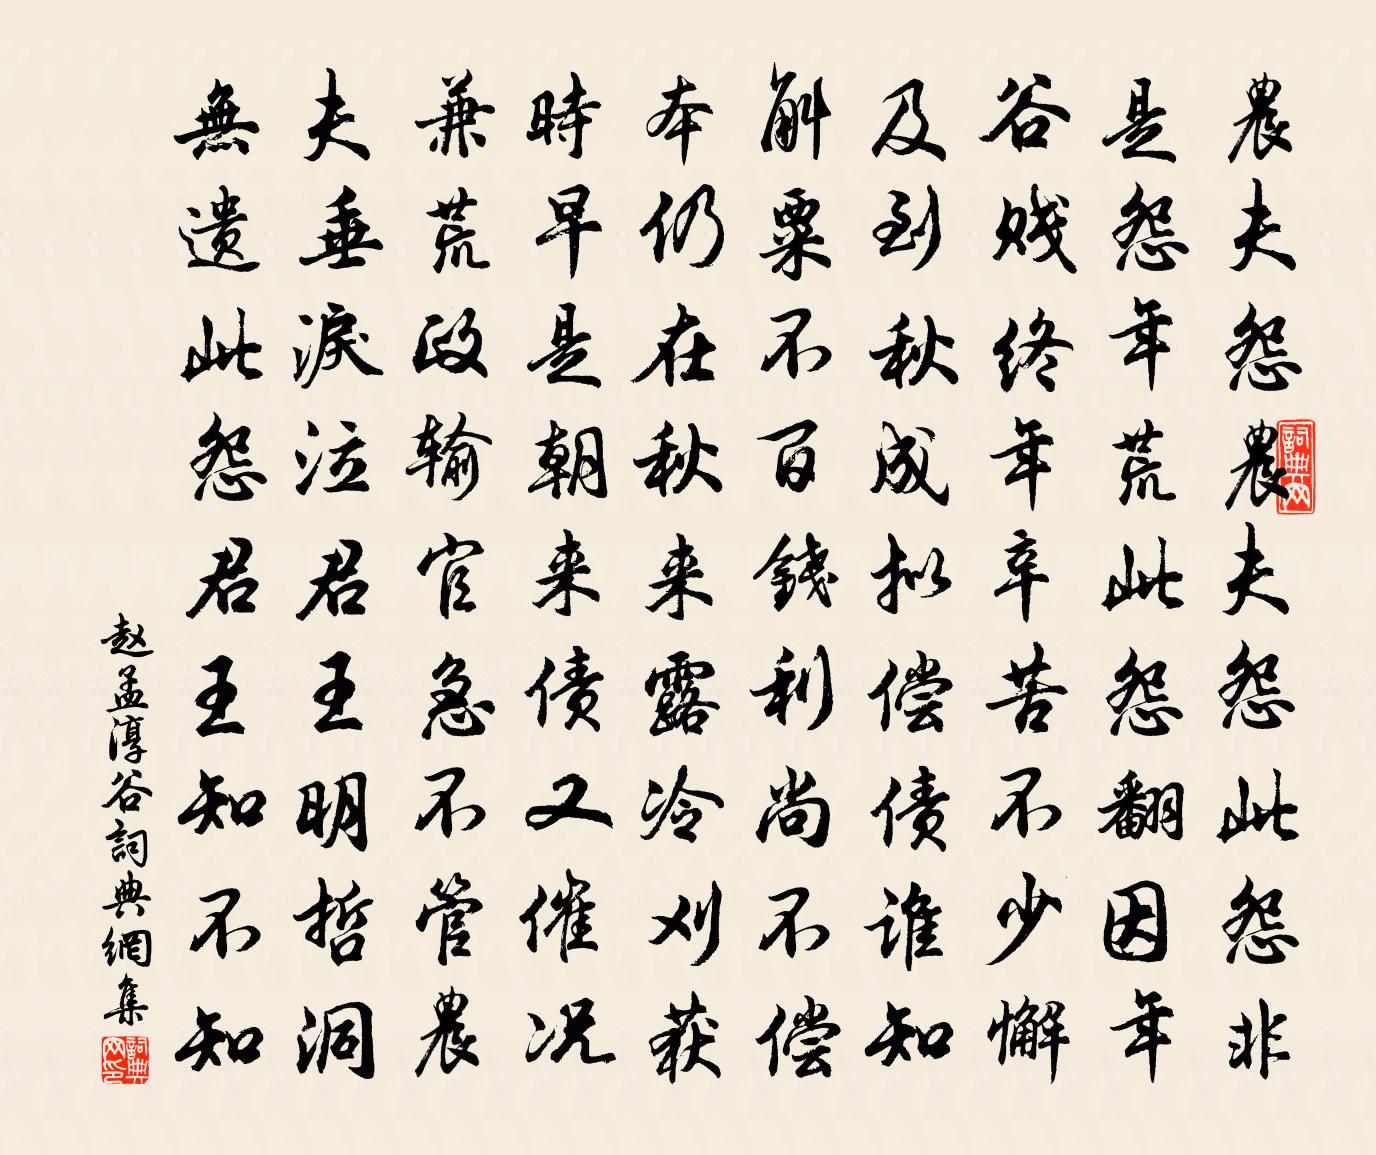 農夫怨農夫怨此怨非
是怨年荒此怨翻因年
谷贱终年辛苦不少懈
及到秋成拟偿债谁知
斛粟不百錢利尚不偿
本仍在秋来露冷刈获
時早是朝来债又催况
兼荒政输官急不管農
夫垂淚泣君王明哲洞
無遗此怨君王知不知
赵孟淳谷詞典網集
詞典网
詞典网印